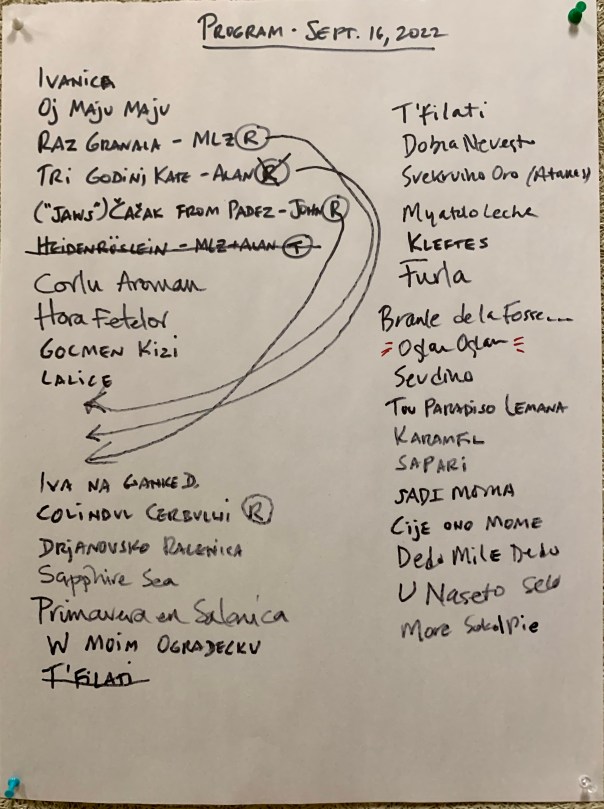 PROGRAM · SEPT. 16, 2022
IVANICA
Oj MAJU MAJU
RAZ GRANALA - MLZ R
TRI GODINI KATE - ALAN R
("JAWS") ČAŽAK FROM PADEZ - JOHN R
HEIDENRÖSLEIN - MLZ + ALAN T
Corlu Aroman
Hora Fetelor
GOCMEN KIZI
LALICE
IVA NA GANKE D.
COLINDUL CERBULUI R
DRJANOVSKO RACENICA
Sapphire Sea
Primavera en Salonica
W MOIM OGRADECKU
T'FILATI
T'filati
Dobra Nevesto
Svekrvino Oro (Atanas)
Myatalo Lenche
KLEFTES
Furla
Branle de la Fosse...
Oglan Oglan
Sevdino
TOU PARADISO LEMANA
KARAMFIL
SAPARI
JADI MOMA
CIJE ONO MOME
Dedo Mile Dedo
U Naseto Selo
More Sokol Pie